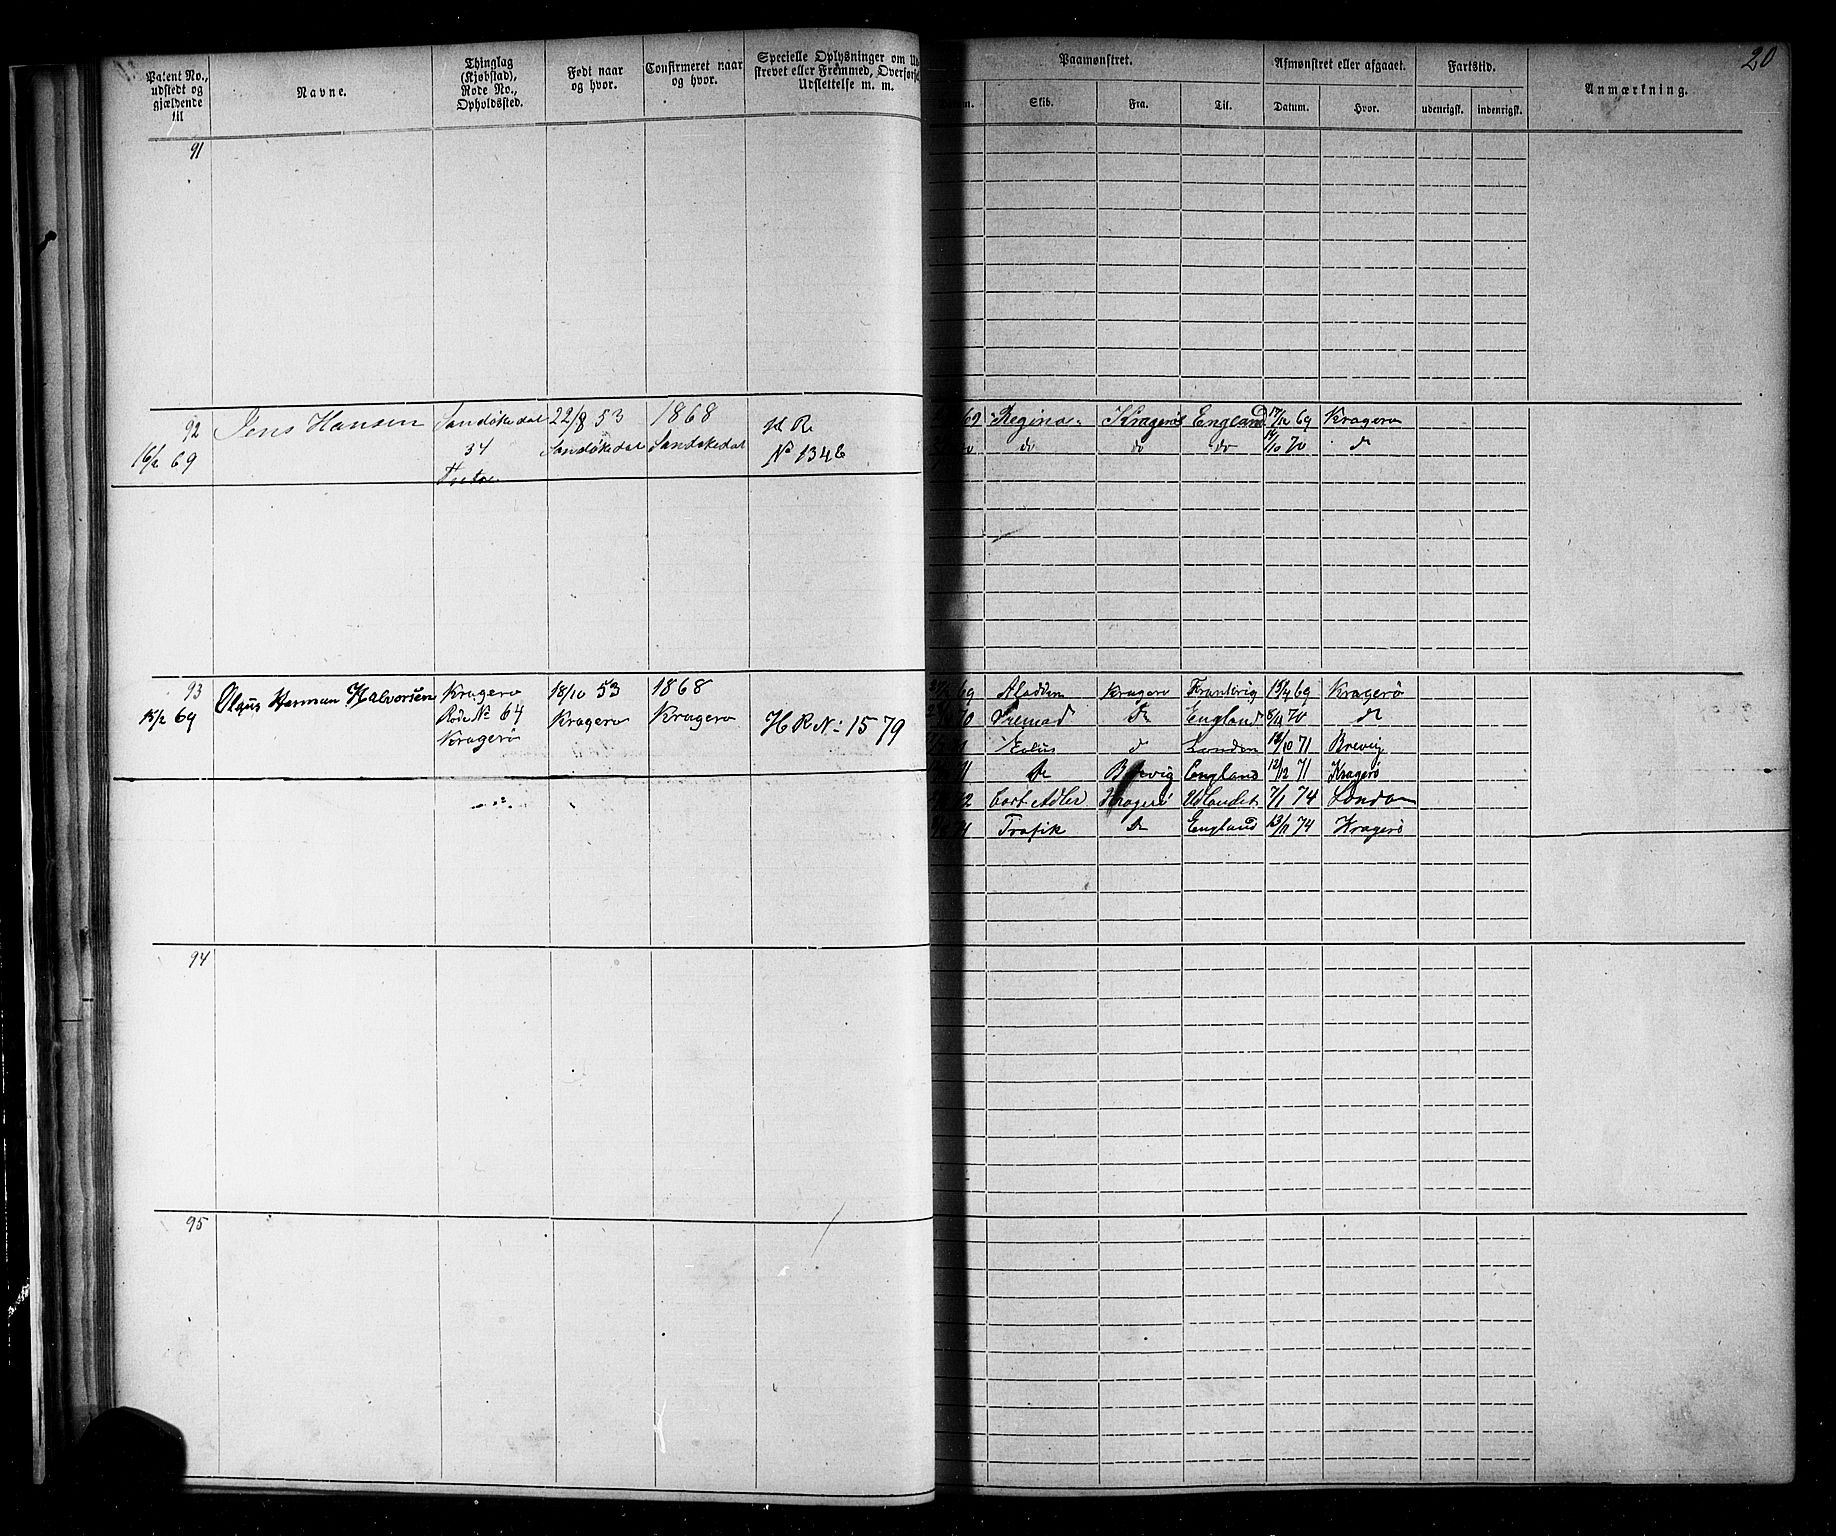 20
Patent No., udstedt og gjældende til
Navne.
Thinglag (Kjøbstad), Rode No., Opholdssted.
Født naar og hvor.
Confirmeret naar og hvor.
Specielle Oplysninger om
strevet eller Fremmed, Overførsel
Udslettelse m. m.
Paamønstret.
Skib.
Fra.
Til.
Afmønstret eller afgaaet.
Datum.
Hvor.
Fartstid.
udenrigsk.
indenrigsk.
Anmærkning.
91
92
16/2 69
Jens Hansen
Sandøkedal
34
22/8 53
Sandøkedal
1868
Sandøkedal
H R
No 1346
69 Regina Kragerø England 17/12 69 Kragerø
do do do 14/10 70 d
93
15/2 69
Olaus Herman Halvorsen
Kragerø
Rode No 64
Kragerø
18/10 53
Kragerø
1868
Kragerø
H R No 1579
69 Aladden Kragerø Frankrig 15/4 69 Kragerø
70 Fremad do England 8/11 70 do
Eolus d London 13/10 71 Brevig
71 do Brevig England 12/12 71 Kragerø
72 Cort Adler Kragerø Udlandet 7/1 74 London
Trafik do England 23/11 74 Kragerø
94
95